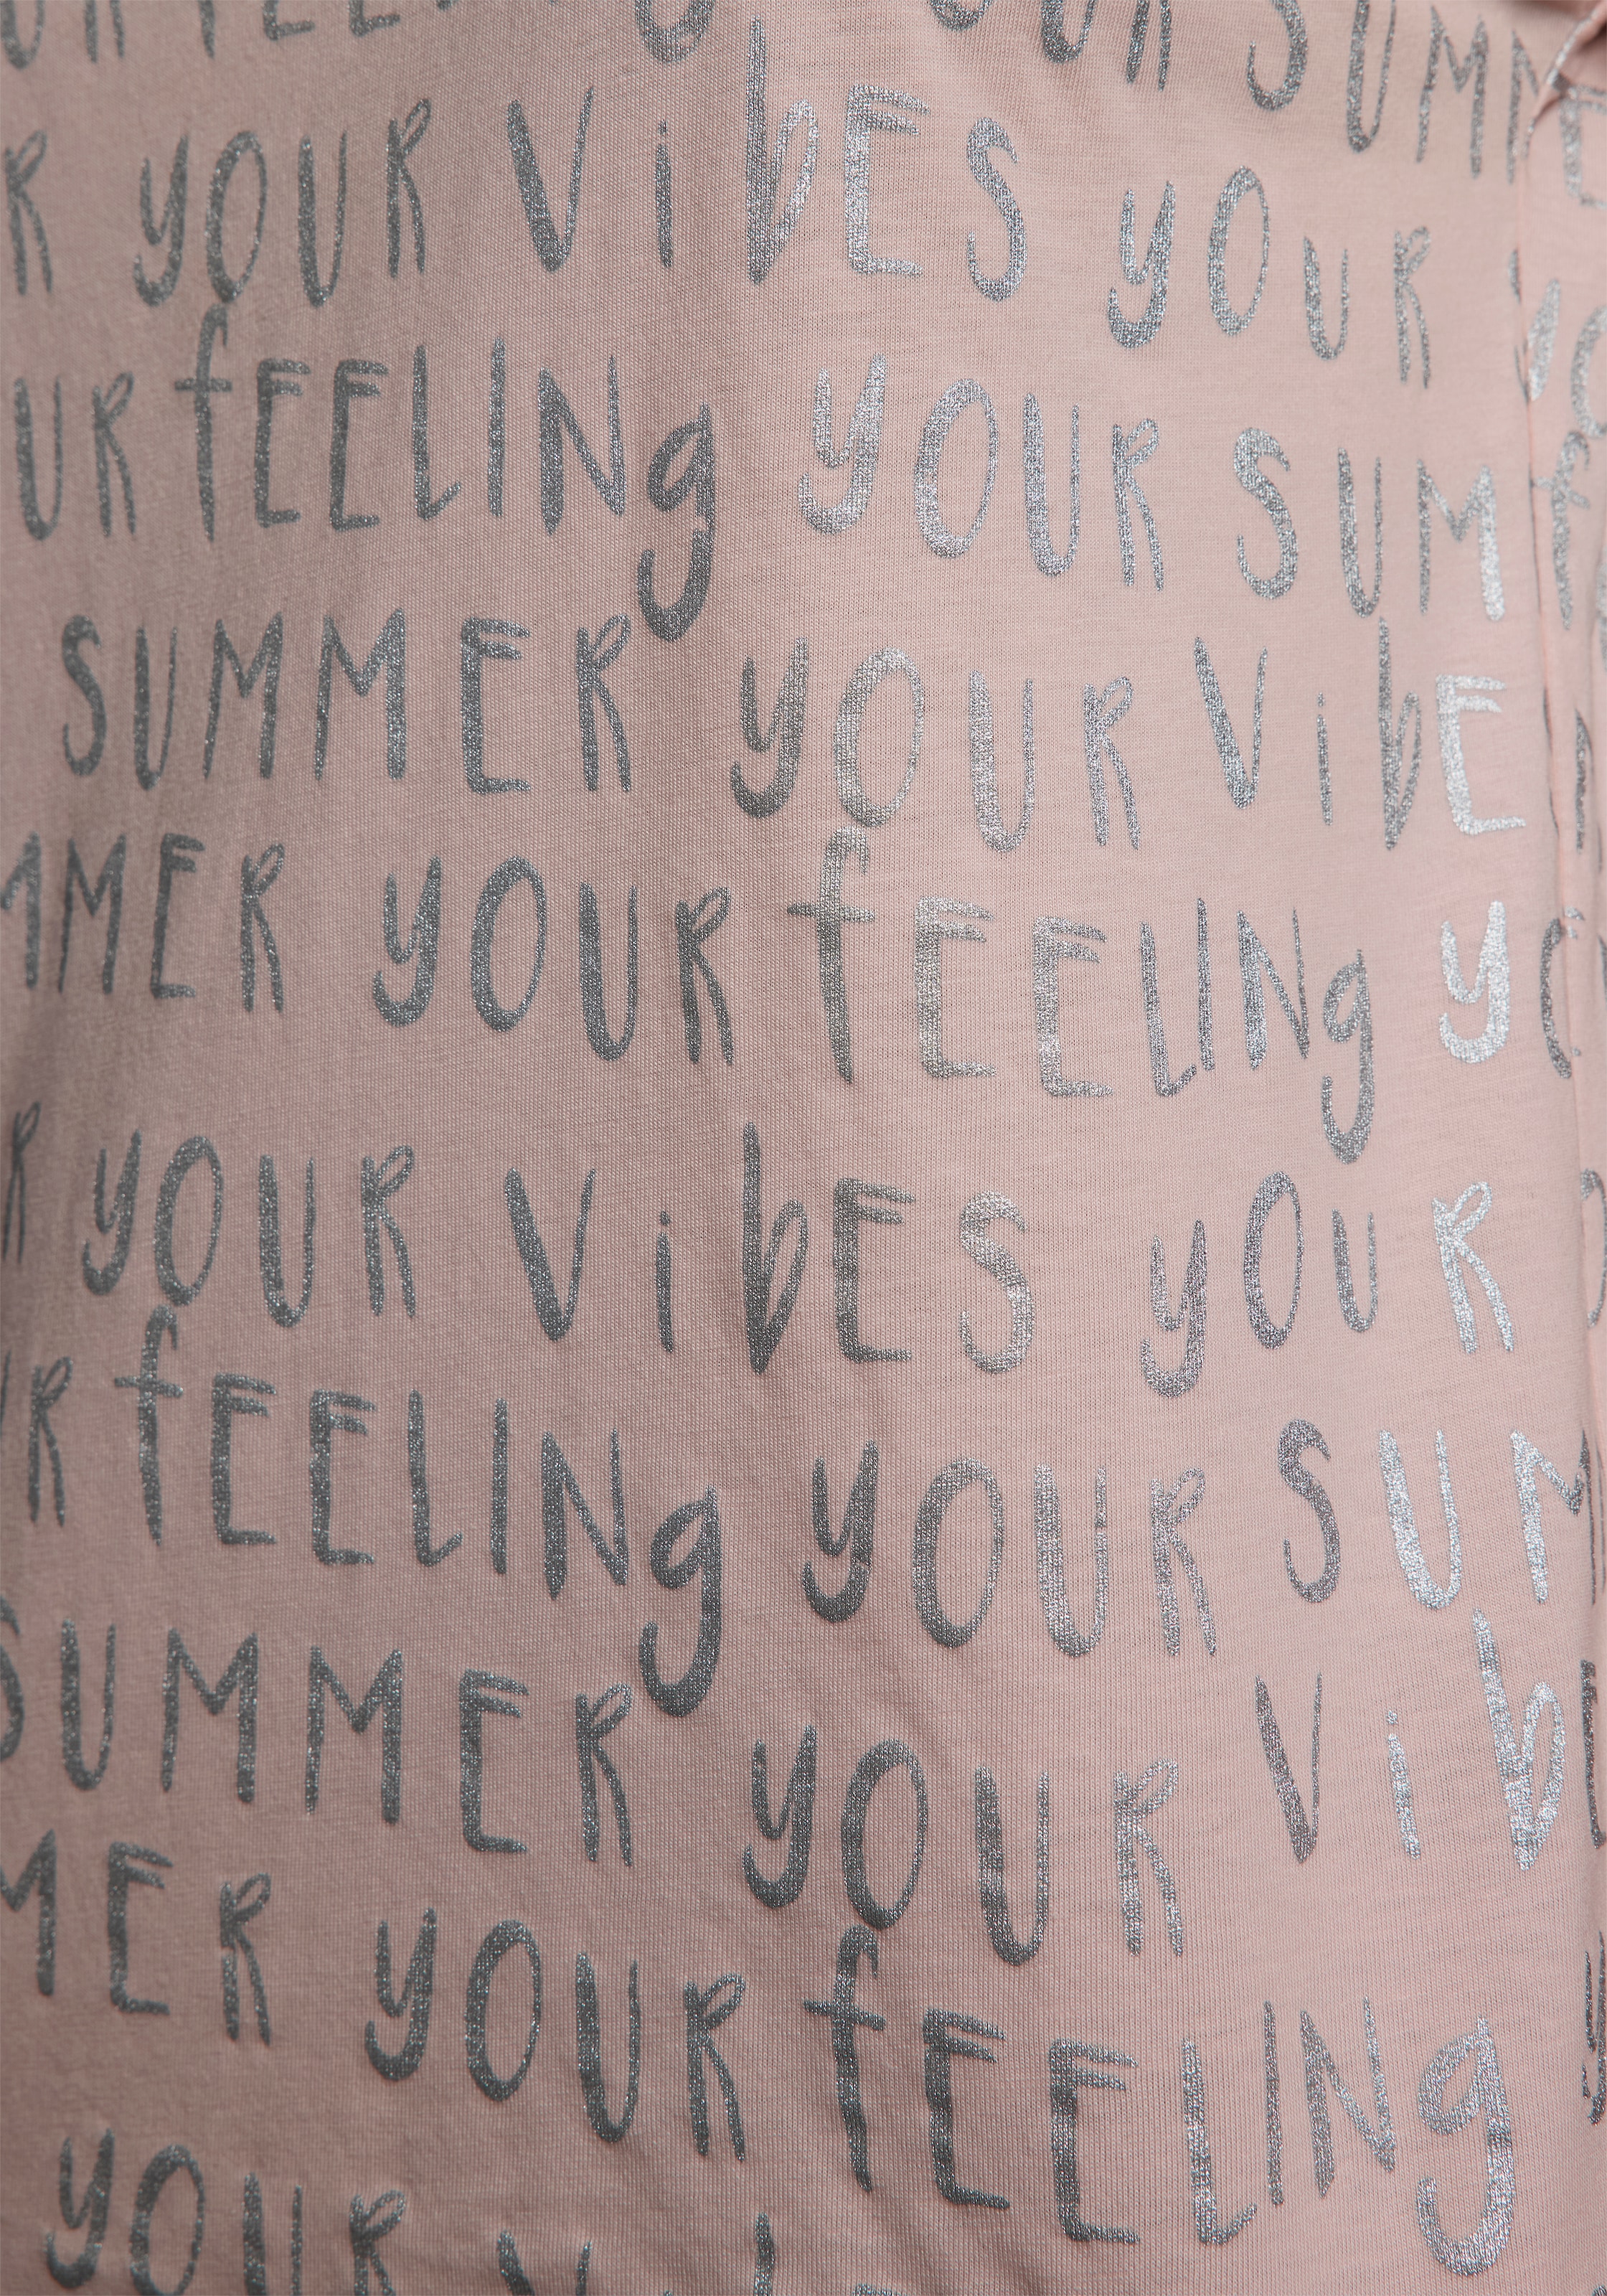 YOUR SUMM
YOUR VibES YOUR
UR fEELINg YOUR SUMM
SUMMER YOUR VibE
MMER YOUR fEELINg YO
R YOUR VibES YOUR
UR fEELINg YOUR SUM
SUMMER YOUR Vib
MER YOUR fEELINg
YOUR